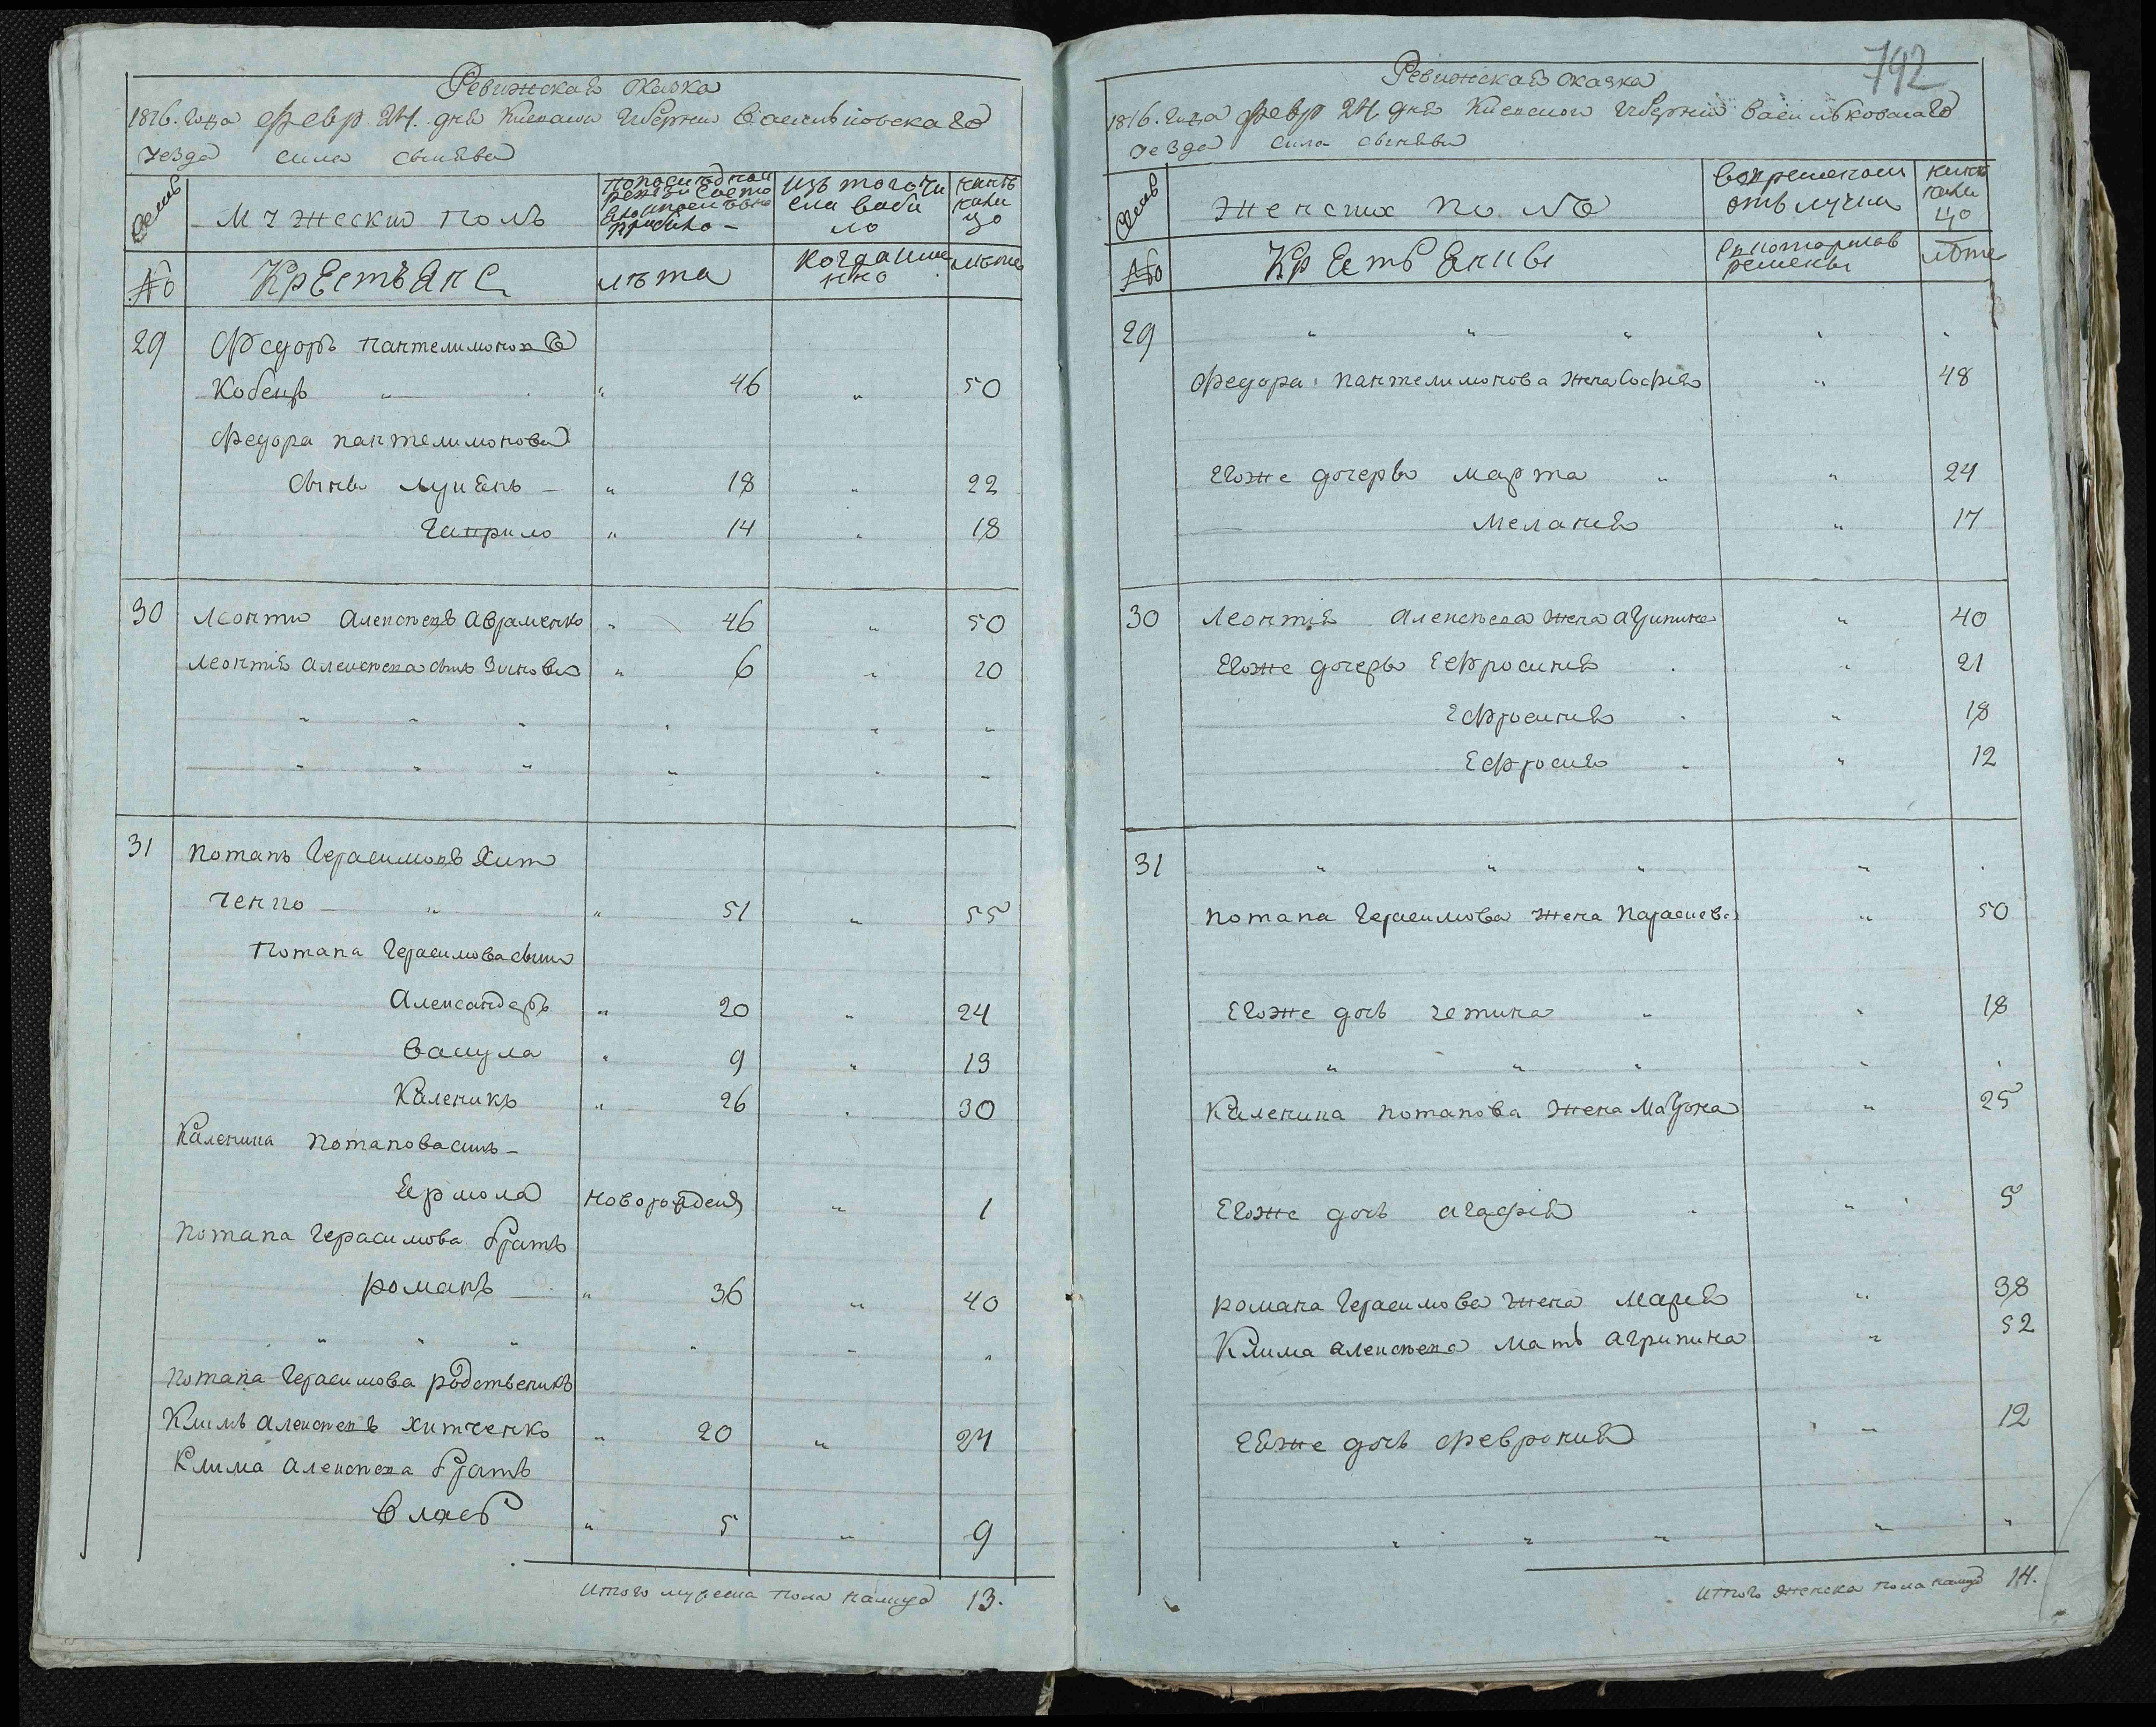 Ревижская сказка
1816. года февр 24. дня Киевской Губернии Васильковскаго
уезда села сынява
Семьи
Мужеский полъ
по последней ревизии состояло и после оной прибыло
изъ того числа выбыло
ныне налицо
№
Крестьяне
лѣта
когда именно
лѣта
29 Федоръ пантелимоновъ
Кобецъ " " 46 " 50
Федора пантелимонова
сынъ луцянъ " 18 " 22
гаврило " 14 " 18
30 Леонтий алексеевъ авраменко " 46 " 50
Леонтия алексеева сынъ Зиновий " 6 " 20
" " " " " "
" " " " " "
31 потапъ Герасимовъ Хит
ченко " " 51 " 55
Потапа Герасимова сыны
Александеръ " 20 " 24
вакула " 9 " 13
Каленикъ " 26 " 30
Каленика Потапова сынъ
Ермола новорожденъ " 1
потапа Герасимова братъ
романъ " 36 " 40
" " " " " "
потапа Герасимова родственикъ
Климъ алексеевъ хитченко " 20 " 24
Клима алексеева братъ
власъ " 5 " 9
итого мужеска пола налицо 13.
792
Ревижская сказка
1816. года февр 24 дня Киевской Губернии Васильковскаго
уезда села сынявы
Семьи
Женский полъ
во временной отлучке
ныне налицо
№
Крестьянки
с котораго времени
лѣта
29 " " " " "
Федора пантелимонова жена София " 48
Егоже дочеры марта " " 24
мелания " 17
30 Леонтия алексеева жена агрипина " 40
Егоже дочеры Ефросиния " " 21
Ефросиния " " 18
Ефросиния " " 12
31 " " " " "
потапа Герасимова жена параскева " 50
Егоже дочь устина " " 18
" " " " "
Каленика потапова жена матрона " 25
Егоже дочь агафия " " 5
романа Герасимова жена мария " 38
Клима алексеева мать агрипина " 52
Еяже дочь феврония " " 12
" " " " "
итого женска пола налицо 14.